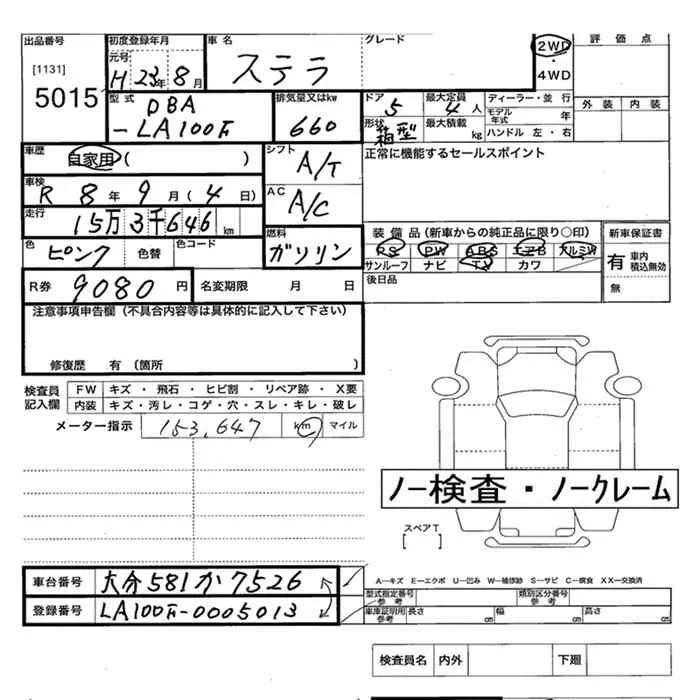 出品番号 初度登録年月 車名 グレード 2WD 評価点
[1131] 元号 ステラ ・
5015 H 23年 8月 4WD 外装 内装
型式 DBA 排気量又はkw ドア 5 最大定員 4人 ディーラー・並行
-LA100F 660 形状 箱型 最大積載 kg モデル年式 年
ハンドル 左・右
車歴 自家用 ( ) シフト A/T 正常に機能するセールスポイント
車検 R 8年 9月 (4日) AC A/C
走行 15万3千646km 装備品(新車からの純正品に限り○印) 新車保証書
色 ピンク 色替 色コード 燃料 ガソリン PS PW ABS エアB アルミW 有 車内積込無効
サンルーフ ナビ TV カワ 無
R券 9080円 名変期限 月 日 後日品
注意事項申告欄(不具合内容等は具体的に記入して下さい)
修復歴 有(箇所 )
検査員記入欄 FW キズ・飛石・ヒビ割・リペア跡・X要
内装 キズ・汚レ・コゲ・穴・スレ・キレ・破レ
メーター指示 153,647 km マイル
ノー検査・ノークレーム
スペアT
[ ]
車台番号 大分581か7526 A―キズ E―エクボ U―凹み W―補修跡 S―サビ C―腐食 XX―交換済
登録番号 LA100F-0005013 型式指定番号 参考 類別区分番号 参考
車庫証明用 参考 長さ cm 幅 cm 高さ cm
検査員名 内外 下廻